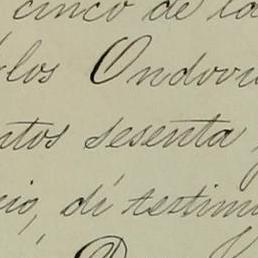 cinco de la
los Ondovi
ntos sesenta
cio, dí testimo